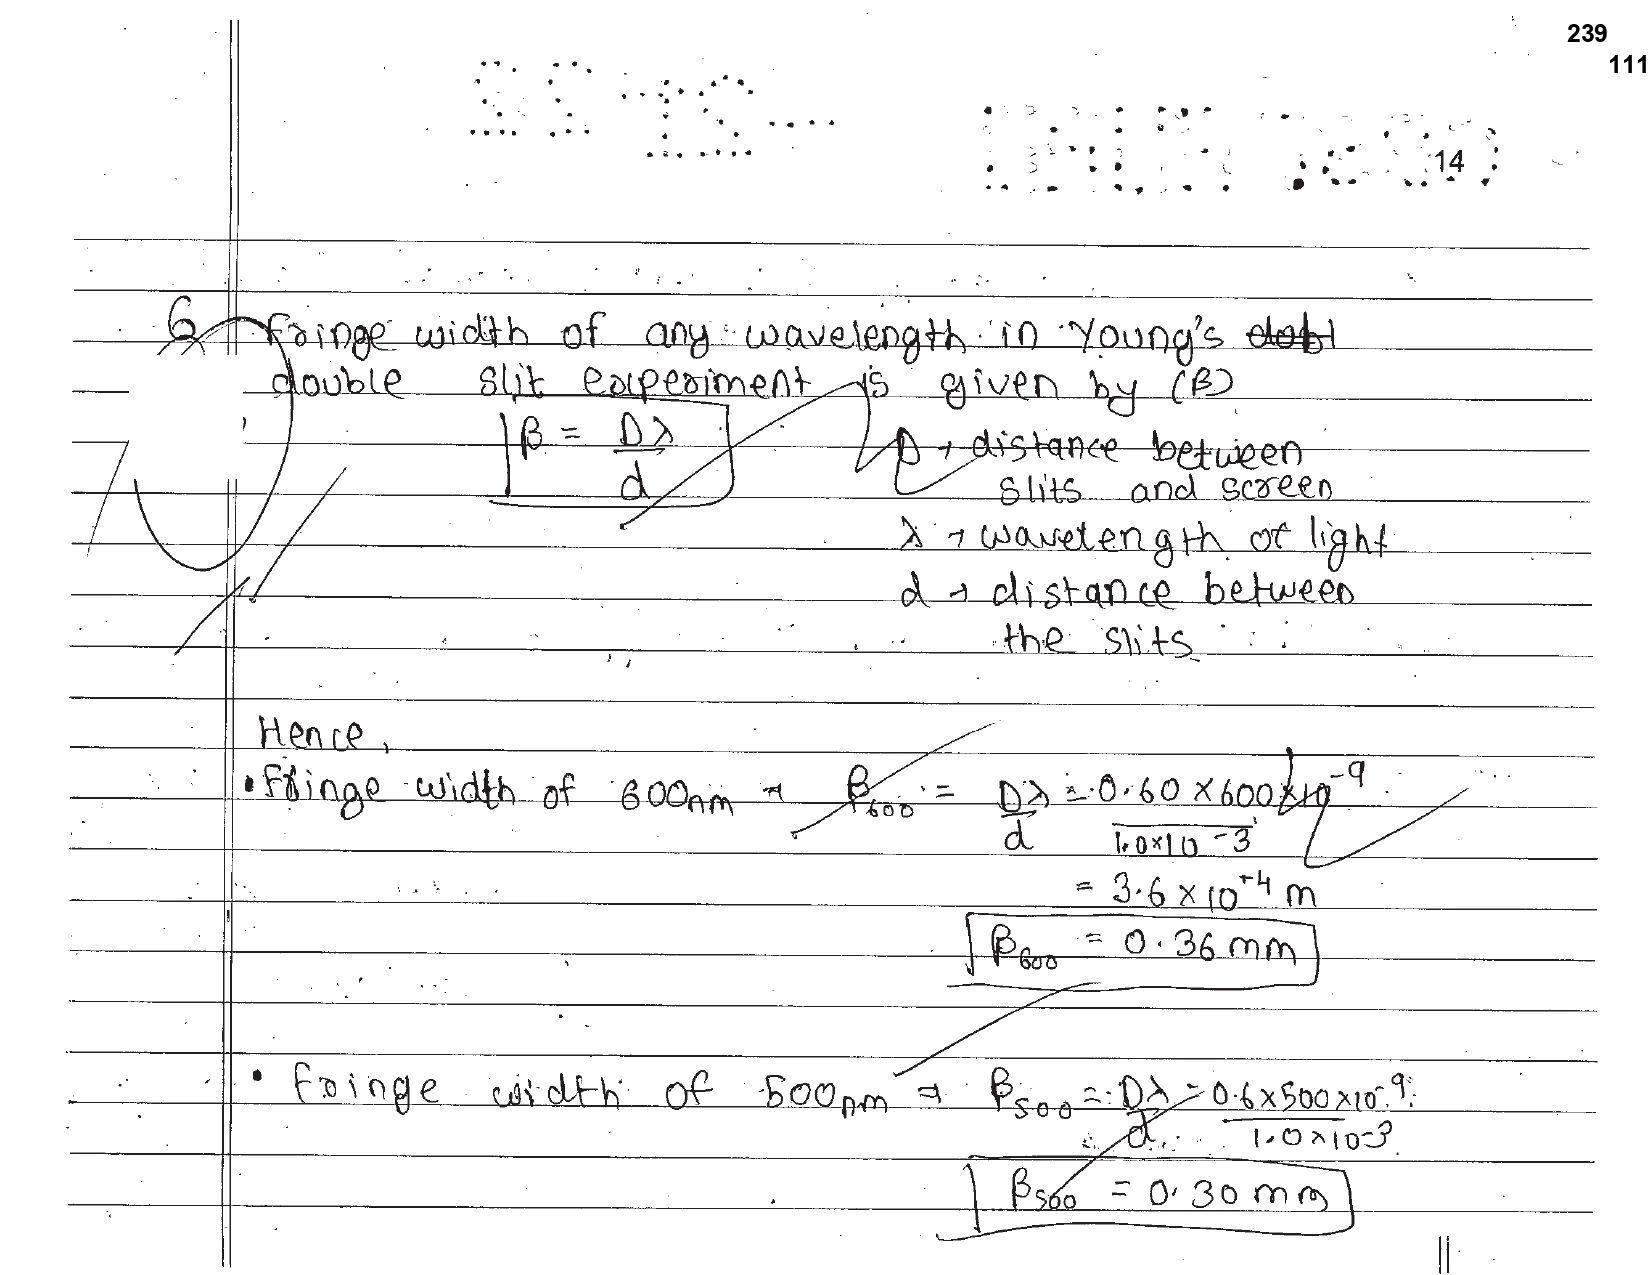 239
111
14
6 Fringe width of any wavelength in Young's
double slit experiment is given by (β)
β = Dλ/d
D → distance between
slits and screen
λ → wavelength of light
d → distance between
the slits
Hence,
• Fringe width of 600nm → β600 = Dλ/d = 0.60 × 600 × 10^-9 / 1.0×10^-3
= 3.6 × 10^-4 m
β600 = 0.36 mm
• Fringe width of 500nm → β500 = Dλ/d = 0.6×500×10^-9 / 1.0×10^-3
β500 = 0.30 mm